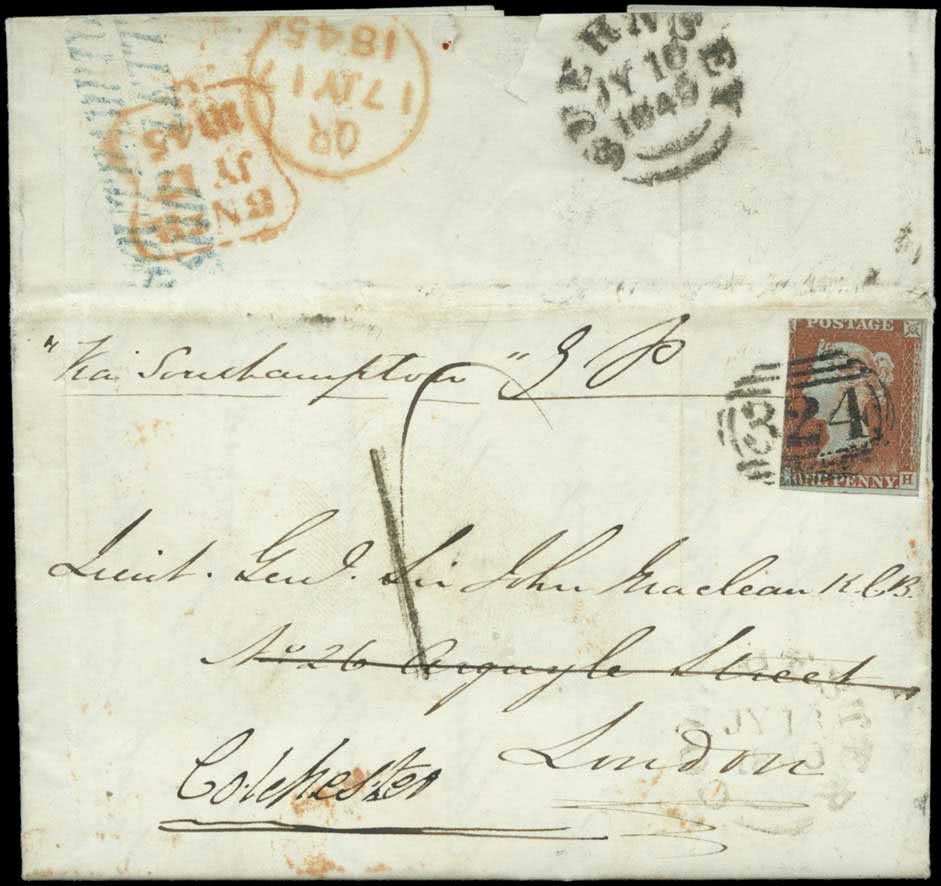 1845
17 JY 17
QR
JY
GUERNSEY
JY 16
1845
"Via Southampton"
POSTAGE
324
ONE PENNY.
H
Lieut. Genl. Sir John Maclean K.C.B.
No. 26 Arguyle Street
JY 1
London
Colchester